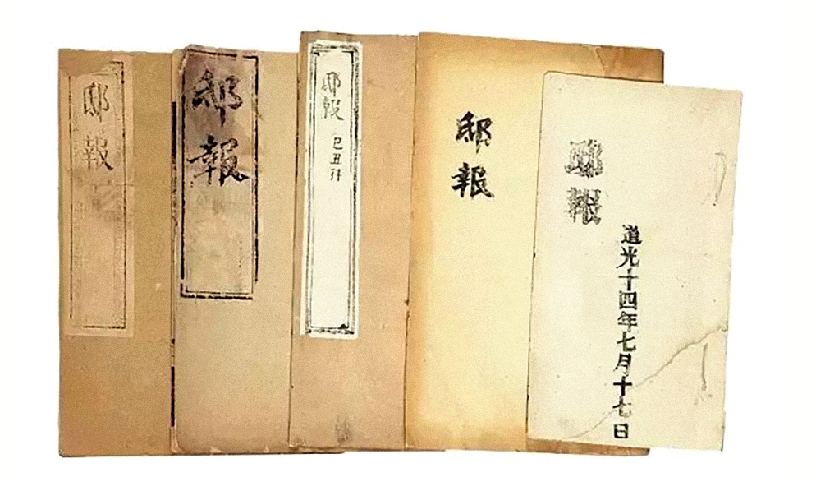 邸報
邸報
邸報 己丑年
邸報
邸報
道光十四年七月十七日